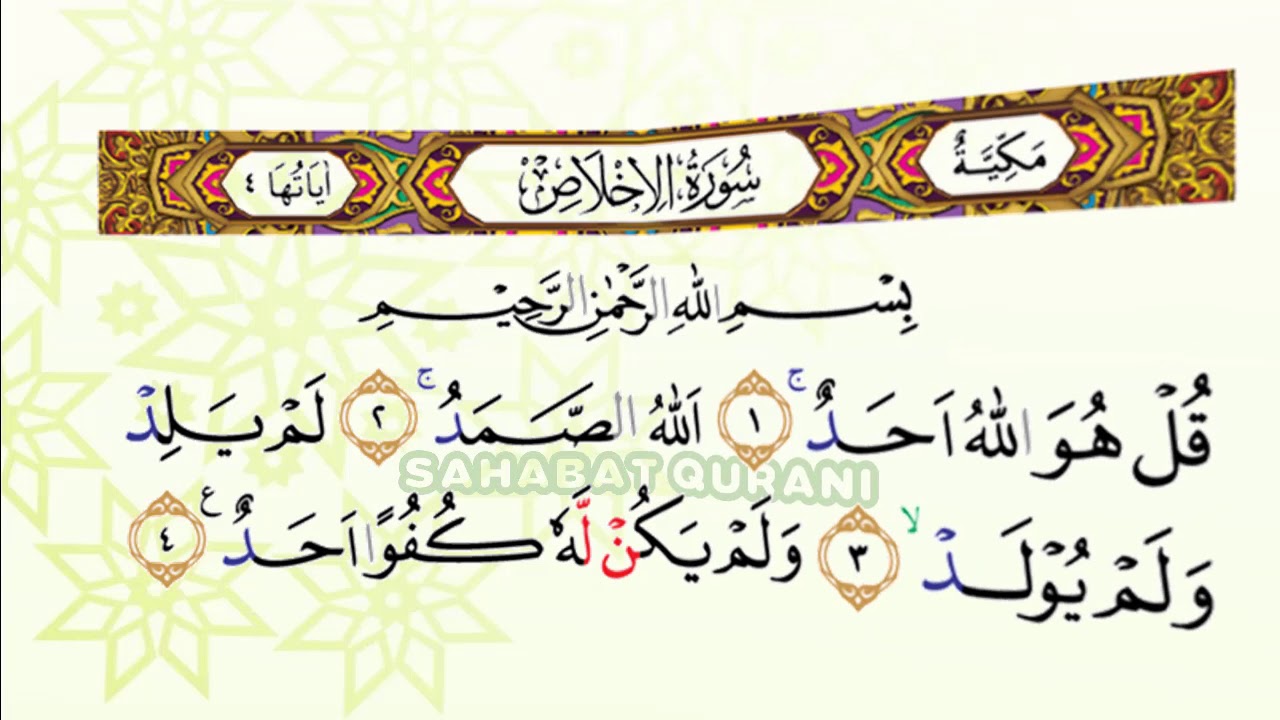 مَكِّيَّةٌ سُوْرَةُ الْاِخْلَاصِ اٰيَاتُهَا ٤
بِسْمِ اللّٰهِ الرَّحْمٰنِ الرَّحِيْمِ
قُلْ هُوَ اللّٰهُ اَحَدٌۚ ١ اَللّٰهُ الصَّمَدُۚ ٢ لَمْ يَلِدْ
SAHABAT QURANI
وَلَمْ يُوْلَدْۙ ٣ وَلَمْ يَكُنْ لَّهٗ كُفُوًا اَحَدٌ ࣖ ٤